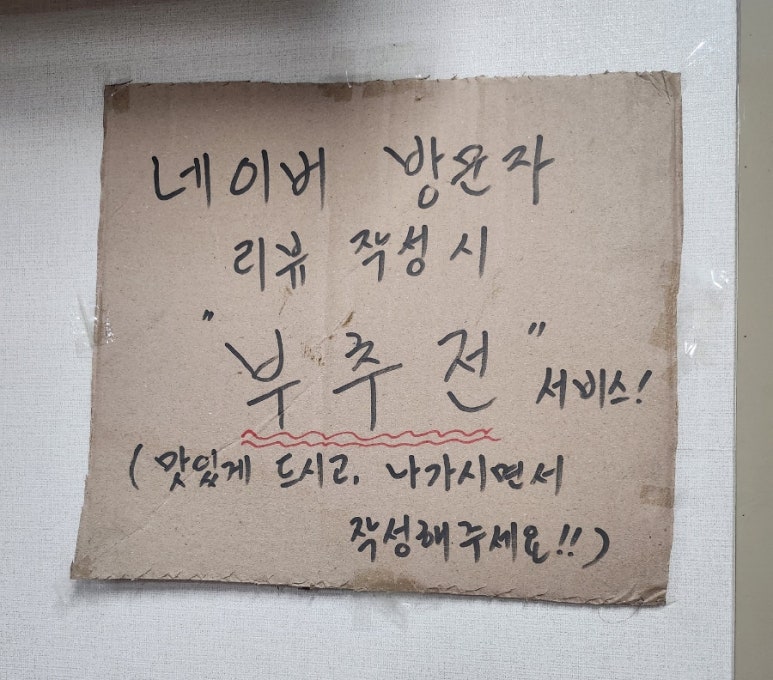 네이버 방문자
리뷰 작성시
"부추전" 서비스!
(맛있게 드시고, 나가시면서
작성해주세요!!)